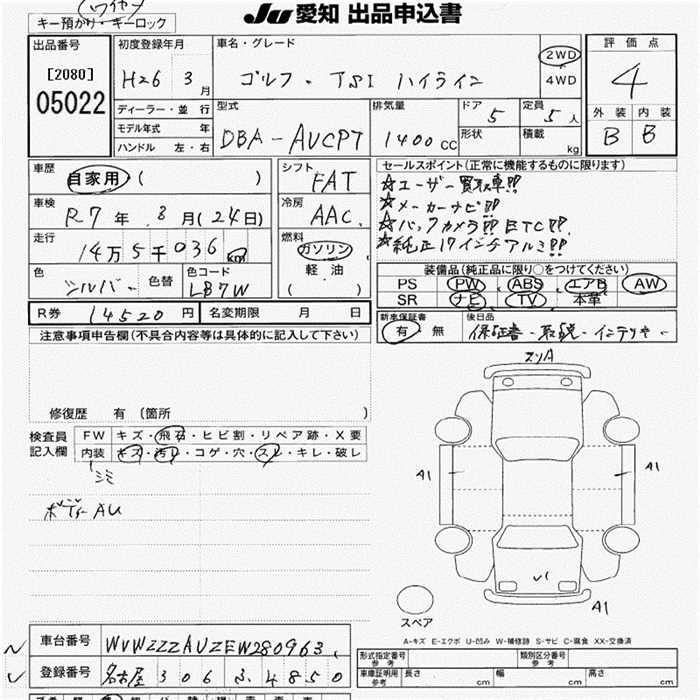 ワイヤレ
キー預かり・キーロック
JU 愛知 出品申込書
出品番号
[2080]
05022
初度登録年月
H26 3月
車名・グレード
ゴルフ・TSI ハイライン
2WD
4WD
評価点
4
外装 内装
B B
ディーラー・並行
モデル年式 年
ハンドル 左・右
型式
DBA-AUCPT
排気量
1400cc
ドア
5
形状
定員
5人
積載
kg
車歴
自家用 ( )
車検
R7年 8月(24日)
走行
14万5千036km
色
シルバー 色替
色コード
LB7W
シフト
FAT
冷房
AAC
燃料
ガソリン
軽油
( )
セールスポイント(正常に機能するものに限ります)
☆ユーザー買取車!!
☆メーカーナビ!!
☆バックカメラ!! ETC!!
☆純正17インチアルミ!!
装備品(純正品に限り○をつけてください)
PS PW ABS エアB AW
SR ナビ TV 本革
R券 14520円 名変期限 月 日
新車保証書
有・無
後日品
保証書・取説・インテリキー
注意事項申告欄(不具合内容等は具体的に記入して下さい)
修復歴 有(箇所 )
検査員
記入欄
FW キズ・飛石・ヒビ割・リペア跡・X要
内装 キズ・汚レ・コゲ・穴・スレ・キレ・破レ
シミ
ボディーAU
スリA
A1
A1
U1
A1
スペア
A-キズ E-エクボ U-凹み W-補修跡 S-サビ C-腐食 XX-交換済
車台番号 WVWZZZAUZEW280963
登録番号 名古屋 306 ふ 4850
形式指定番号
参考
類別区分番号
参考
車庫証明用
参考
長さ cm 幅 cm 高さ cm